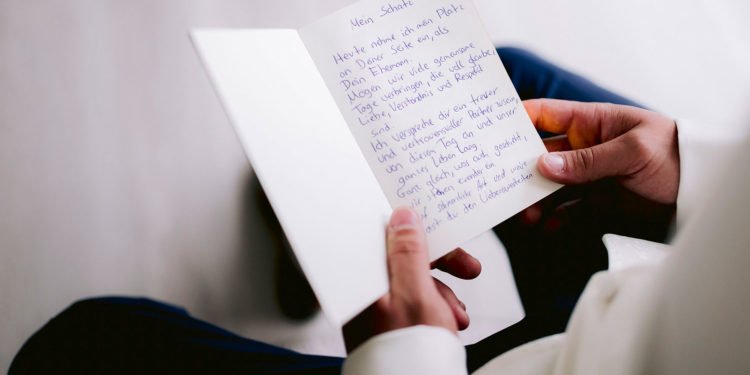 Mein Schatz
Heute nehme ich mein Platz
an Deiner Seite ein, als
Dein Ehemann.
Mögen wir viele gemeinsame
Tage verbringen, die voll Glaube,
Liebe, Verständnis und Respekt
sind.
Ich verspreche dir ein treuer
und vertrauensvoller Partner zu sein,
von diesem Tag an und unser
ganzes Leben lang.
Ganz gleich, was auch geschieht,
wir stehen einander ein.
Art und weise
hast du den